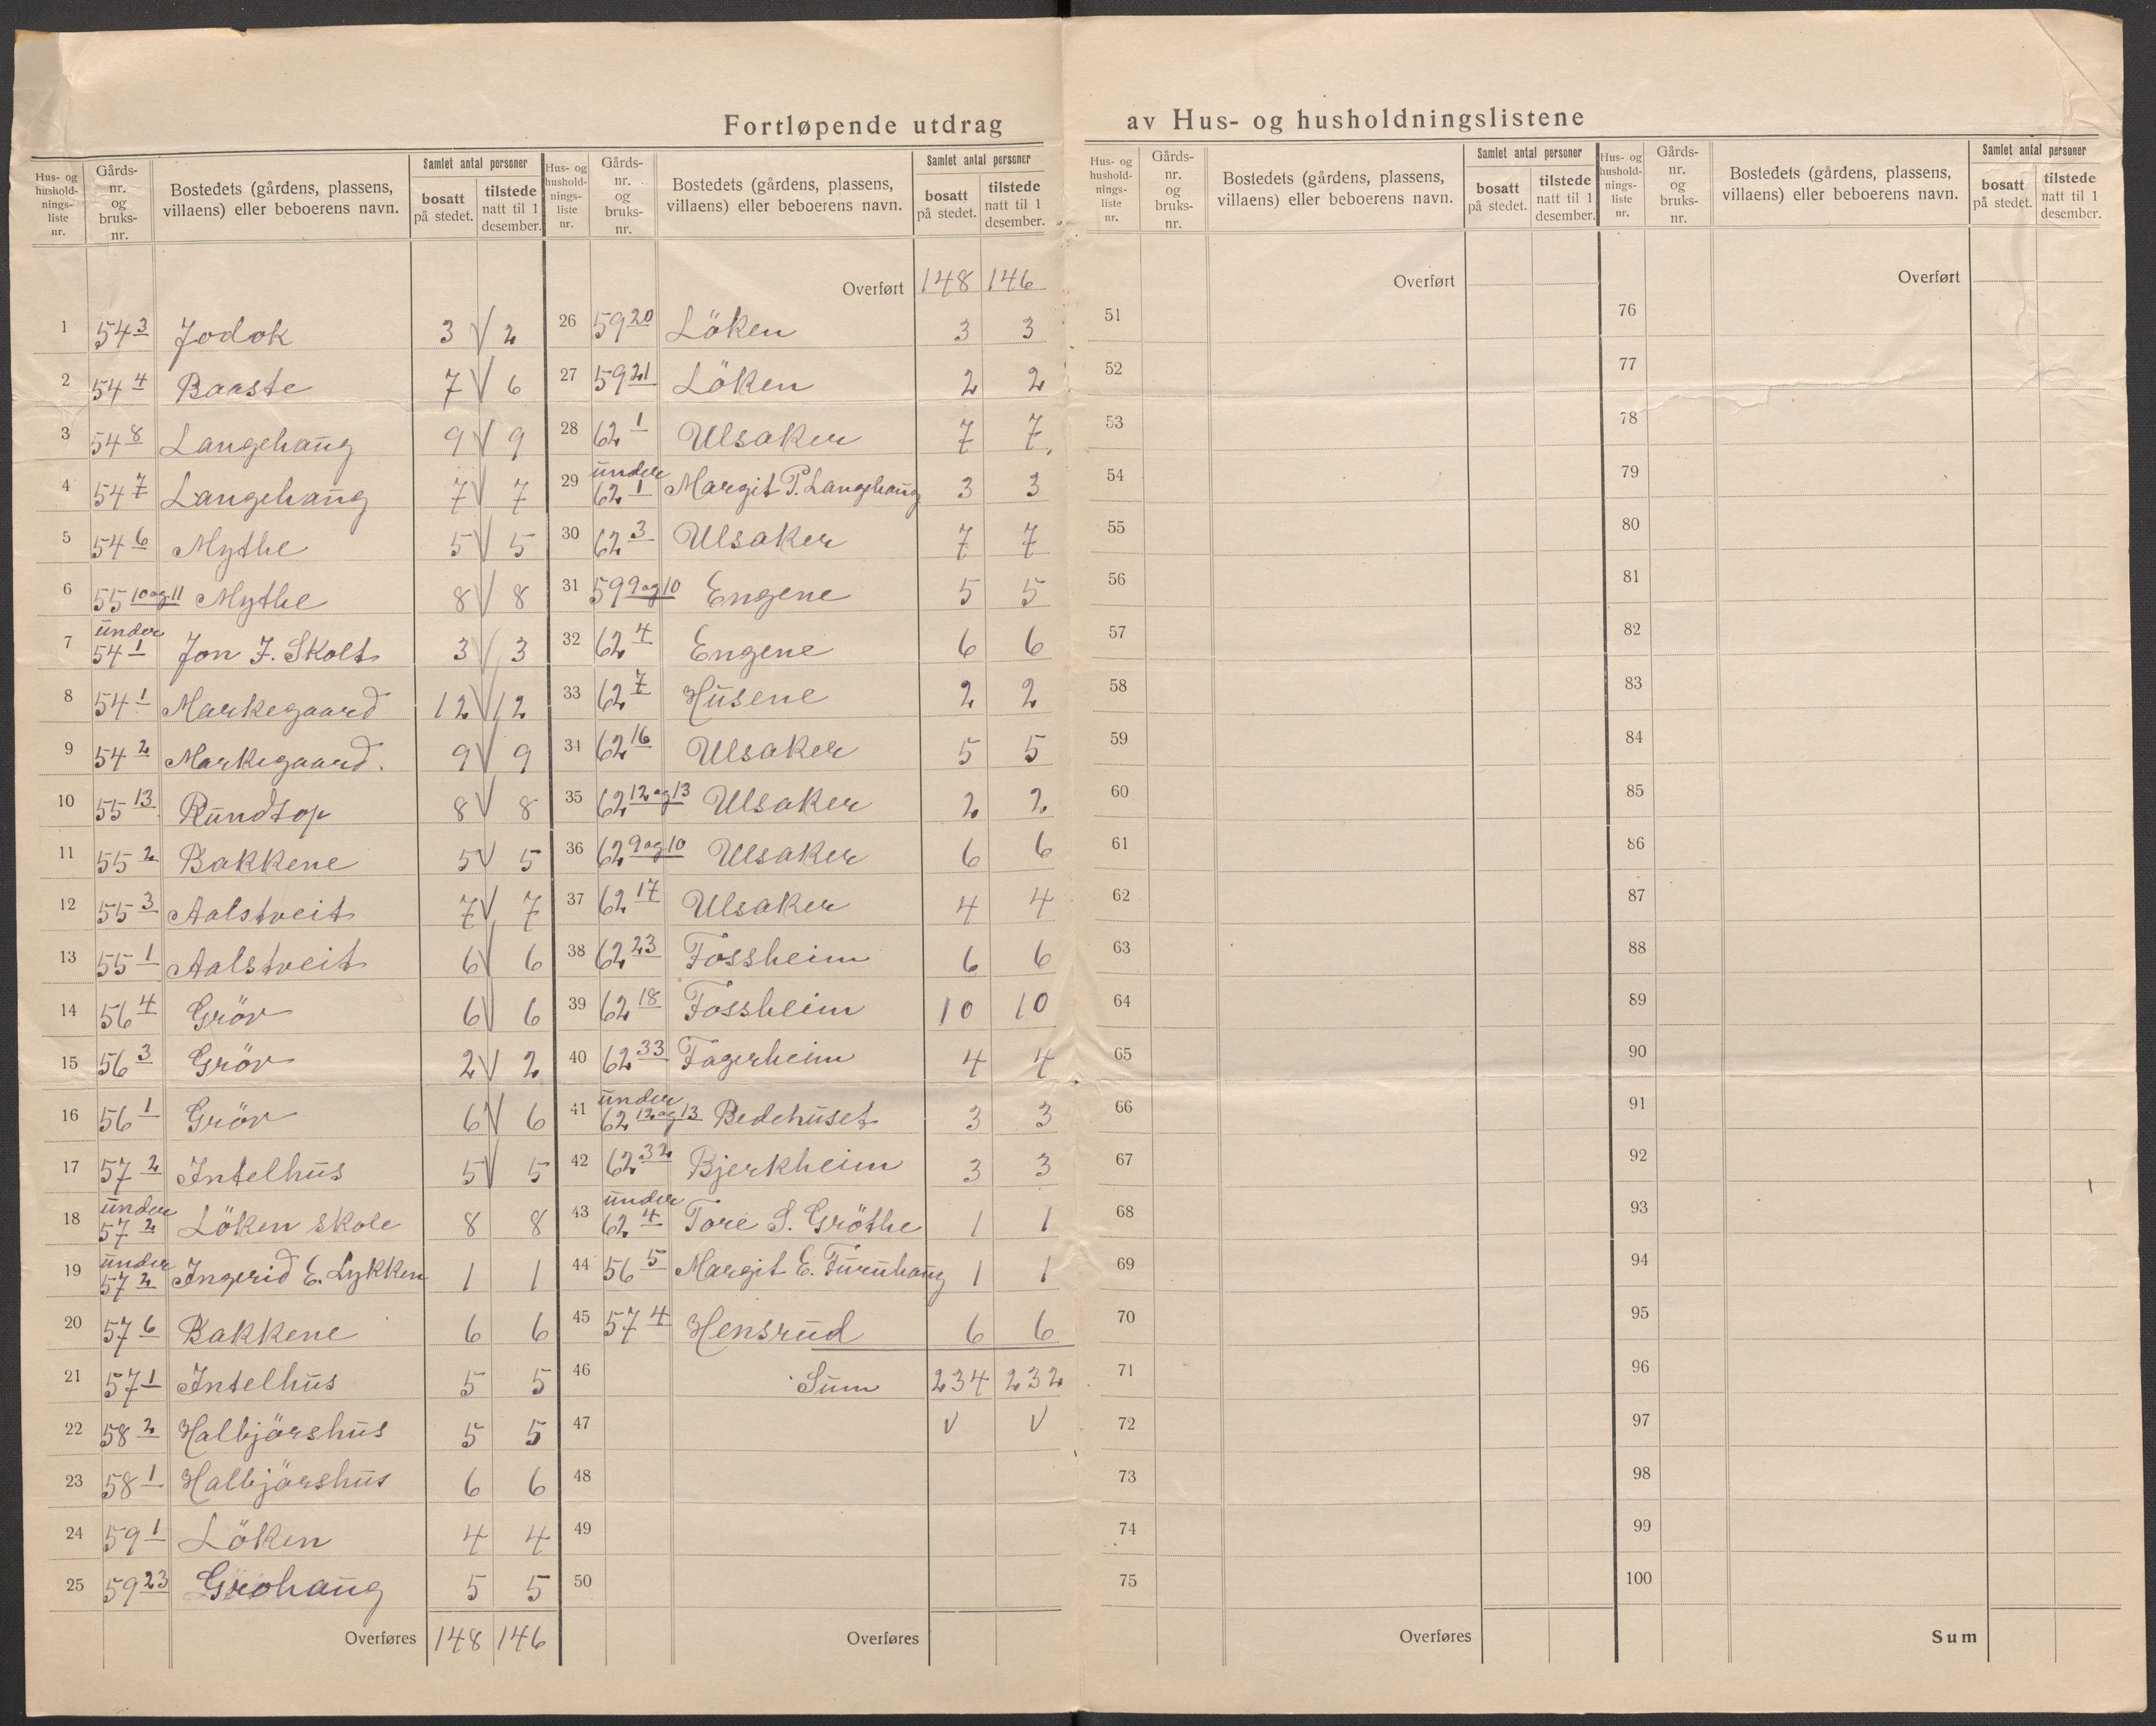 Fortløpende utdrag av Hus- og husholdningslistene
Hus- og hushold-nings-liste nr. Gårds-nr. og bruks-nr. Bostedets (gårdens, plassens, villaens) eller beboerens navn. Samlet antal personer bosatt på stedet. tilstede natt til 1 desember.
1 54 3 Jodok 3 V 2
2 54 4 Baaste 7 V 6
3 54 8 Langehaug 9 V 9
4 54 7 Langehaug 7 V 7
5 54 6 Mythe 5 V 5
6 55 10 og 11 Mythe 8 V 8
7 under 54 1 Jon J. Skolt 3 V 3
8 54 1 Markegaard 12 V 12
9 54 2 Markegaard. 9 V 9
10 55 13 Rundtop 8 V 8
11 55 2 Bakkene 5 V 5
12 55 3 Aalstveit 7 V 7
13 55 1 Aalstveit 6 V 6
14 56 4 Gröv 6 V 6
15 56 3 Gröv 2 V 2
16 56 1 Gröv 6 V 6
17 57 2 Intelhus 5 V 5
18 under 57 2 Löken skole 8 8
19 under 57 2 Ingerid E. Lykken 1 1
20 57 6 Bakkene 6 6
21 57 1 Intelhus 5 5
22 58 2 Halbjörshus 5 5
23 58 1 Halbjörshus 6 6
24 59 1 Löken 4 4
25 59 23 Grohaug 5 5
Overføres 148 146
Hus- og hushold-nings-liste nr. Gårds-nr. og bruks-nr. Bostedets (gårdens, plassens, villaens) eller beboerens navn. Samlet antal personer bosatt på stedet. tilstede natt til 1 desember.
Overført 148 146
26 59 20 Löken 3 3
27 59 21 Löken 2 2
28 62 1 Ulsaker 7 7
29 under 62 1 Margit P. Langehaug 3 3
30 62 3 Ulsaker 7 7
31 59 9 og 10 Engene 5 5
32 62 4 Engene 6 6
33 62 7 Husene 2 2
34 62 16 Ulsaker 5 5
35 62 12 og 13 Ulsaker 2 2
36 62 9 og 10 Ulsaker 6 6
37 62 17 Ulsaker 4 4
38 62 23 Fossheim 6 6
39 62 18 Fossheim 10 10
40 62 33 Fagerheim 4 4
41 under 62 12 og 13 Bedehuset 3 3
42 62 32 Bjerkheim 3 3
43 under 62 4 Tore S. Gröthe 1 1
44 56 5 Margit E. Furuhaug 1 1
45 57 4 Hensrud 6 6
46 Sum 234 232
47 V V
48
49
50
Overføres
Hus- og hushold-nings-liste nr. Gårds-nr. og bruks-nr. Bostedets (gårdens, plassens, villaens) eller beboerens navn. Samlet antal personer bosatt på stedet. tilstede natt til 1 desember.
Overført
51
52
53
54
55
56
57
58
59
60
61
62
63
64
65
66
67
68
69
70
71
72
73
74
75
Overføres
Hus- og hushold-nings-liste nr. Gårds-nr. og bruks-nr. Bostedets (gårdens, plassens, villaens) eller beboerens navn. Samlet antal personer bosatt på stedet. tilstede natt til 1 desember.
Overført
76
77
78
79
80
81
82
83
84
85
86
87
88
89
90
91
92
93
94
95
96
97
98
99
100
Sum